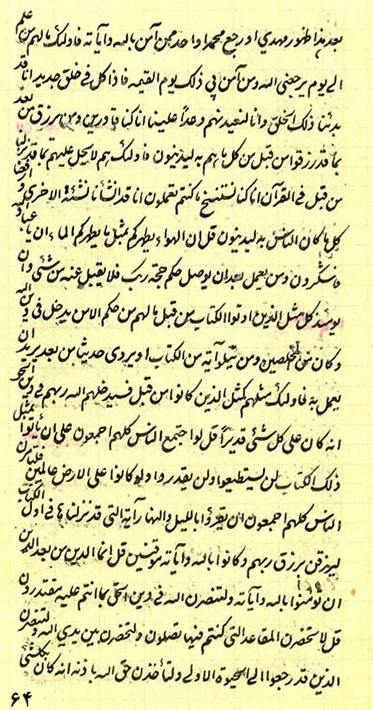 بعد هذا ظهور مهدي او رجع محمد او احد ممن آمن بالله وآياته فاولئك مالهم من علم
الى يوم يرجعني الله ومن آمن بي ذلك يوم القيمه فاذا كل في خلق جديد انا قد
بدئنا ذلك الخلق وانا لنعيدنهم وعداً علينا انا كنا قادرين ومن يرزق من بعد
بما قدر رزقوا من قبل من كل ما هم به ليدينون فاولئك هم لا يحل عليهم بما قد نزلنا
من قبل في القرآن انا كنا نستنسخ ما كنتم تعملون انا قد انشأنا نشئة الاخرى
كل ما كان الناس به ليدينون قل ان الهواء يطهركم بمثل ما يطهركم الماء ان يا عبادي
فاشكرون ومن يعمل بعد ان يوصل حكم حجة ربك فلا يقبل عنه من شئ وان
يومئذ كل مثل الذين اوتوا الكتاب من قبل مالهم من حكم الا من يدخل في دين الله
وكان من المخلصين ومن يتلو آية من الكتاب او يروى حديثا من بعد يريد ان
يعمل به فاولئك مثلهم كمثل الذين كانوا من قبل فسيدخلهم الله ربهم في دين الحق
انه كان على كل شئ قديراً قل لو اجتمع الناس كلهم اجمعون على ان يأتوا بمثل
ذلك الكتاب لن يستطيعوا ولن يقدروا ولو كانوا على الارض عالمين
الناس كلهم اجمعون ان يقرؤا بالليل والنهار آية التي قد نزلناها في اول الكتاب
ليرزقن برزق ربهم وكانوا بالله وآياته موقنين قل انما الدين من بعد الدين
ان تؤمنوا بالله وآياته ولتنصرن الله في دين الحق بما انتم عليه مقتدرون
قل لا تحضرن المقاعد التي كنتم فيها تصلون ولتحضرن بين يدي الله ولتنصرن
الذين قد رجعوا الى الحيوة الاولى ولتأخذن حق الله باذنه انه كان بكل شئ
۶۴